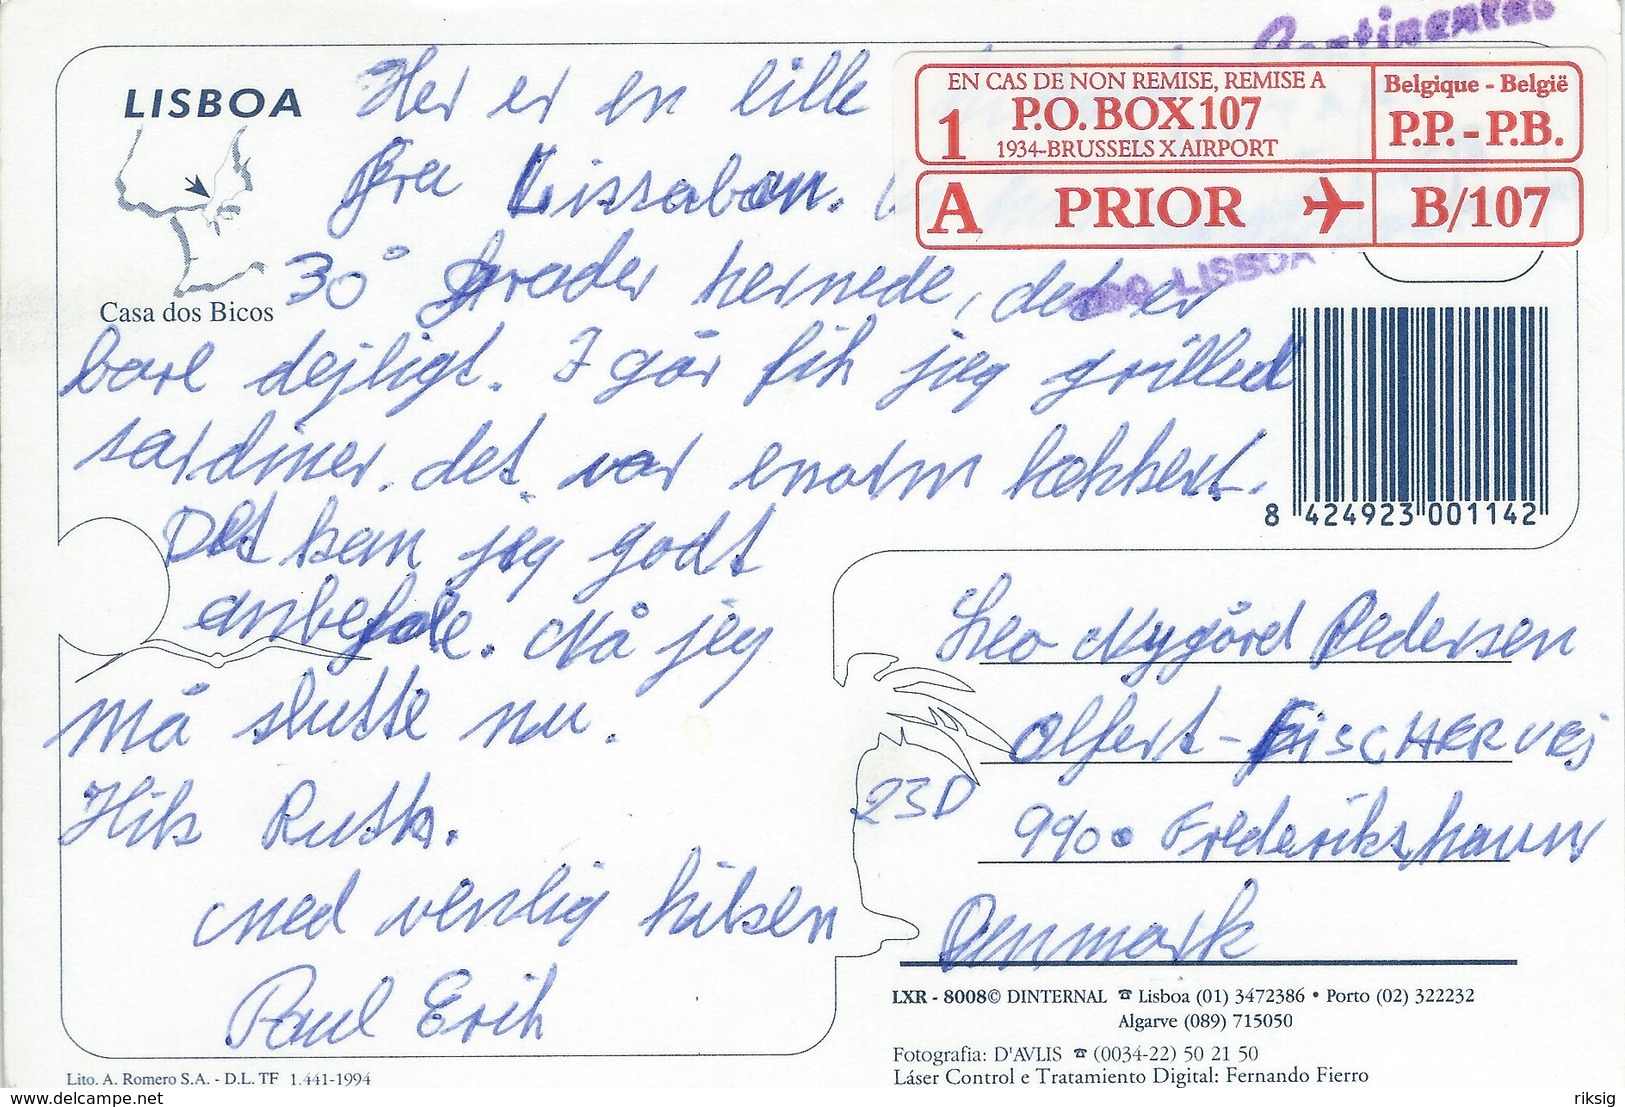 LISBOA
Casa dos Bicos
Her er en lille
fra Lissabon.
30° grader hernede, det er
bare dejligt. I går fik jeg grilled
sardiner. det var enorm lækkert.
Det kan jeg godt
anbefale. Nå jeg
må slutte nu.
Hils Ruth.
med venlig hilsen
Poul Erik
Continental
EN CAS DE NON REMISE, REMISE A
1 P.O. BOX 107
1934-BRUSSELS X AIRPORT
Belgique - België
P.P. - P.B.
A PRIOR B/107
LISBOA
8 424923 001142
Leo Nygård Pedersen
Olfert-FiscHERVEj
23D
9900 Frederikshavn
Denmark
LXR - 8008© DINTERNAL ☎ Lisboa (01) 3472386 • Porto (02) 322232
Algarve (089) 715050
Fotografia: D'AVLIS ☎ (0034-22) 50 21 50
Láser Control e Tratamiento Digital: Fernando Fierro
Lito. A. Romero S.A. - D.L. TF 1.441-1994
www.delcampe.net
riksig